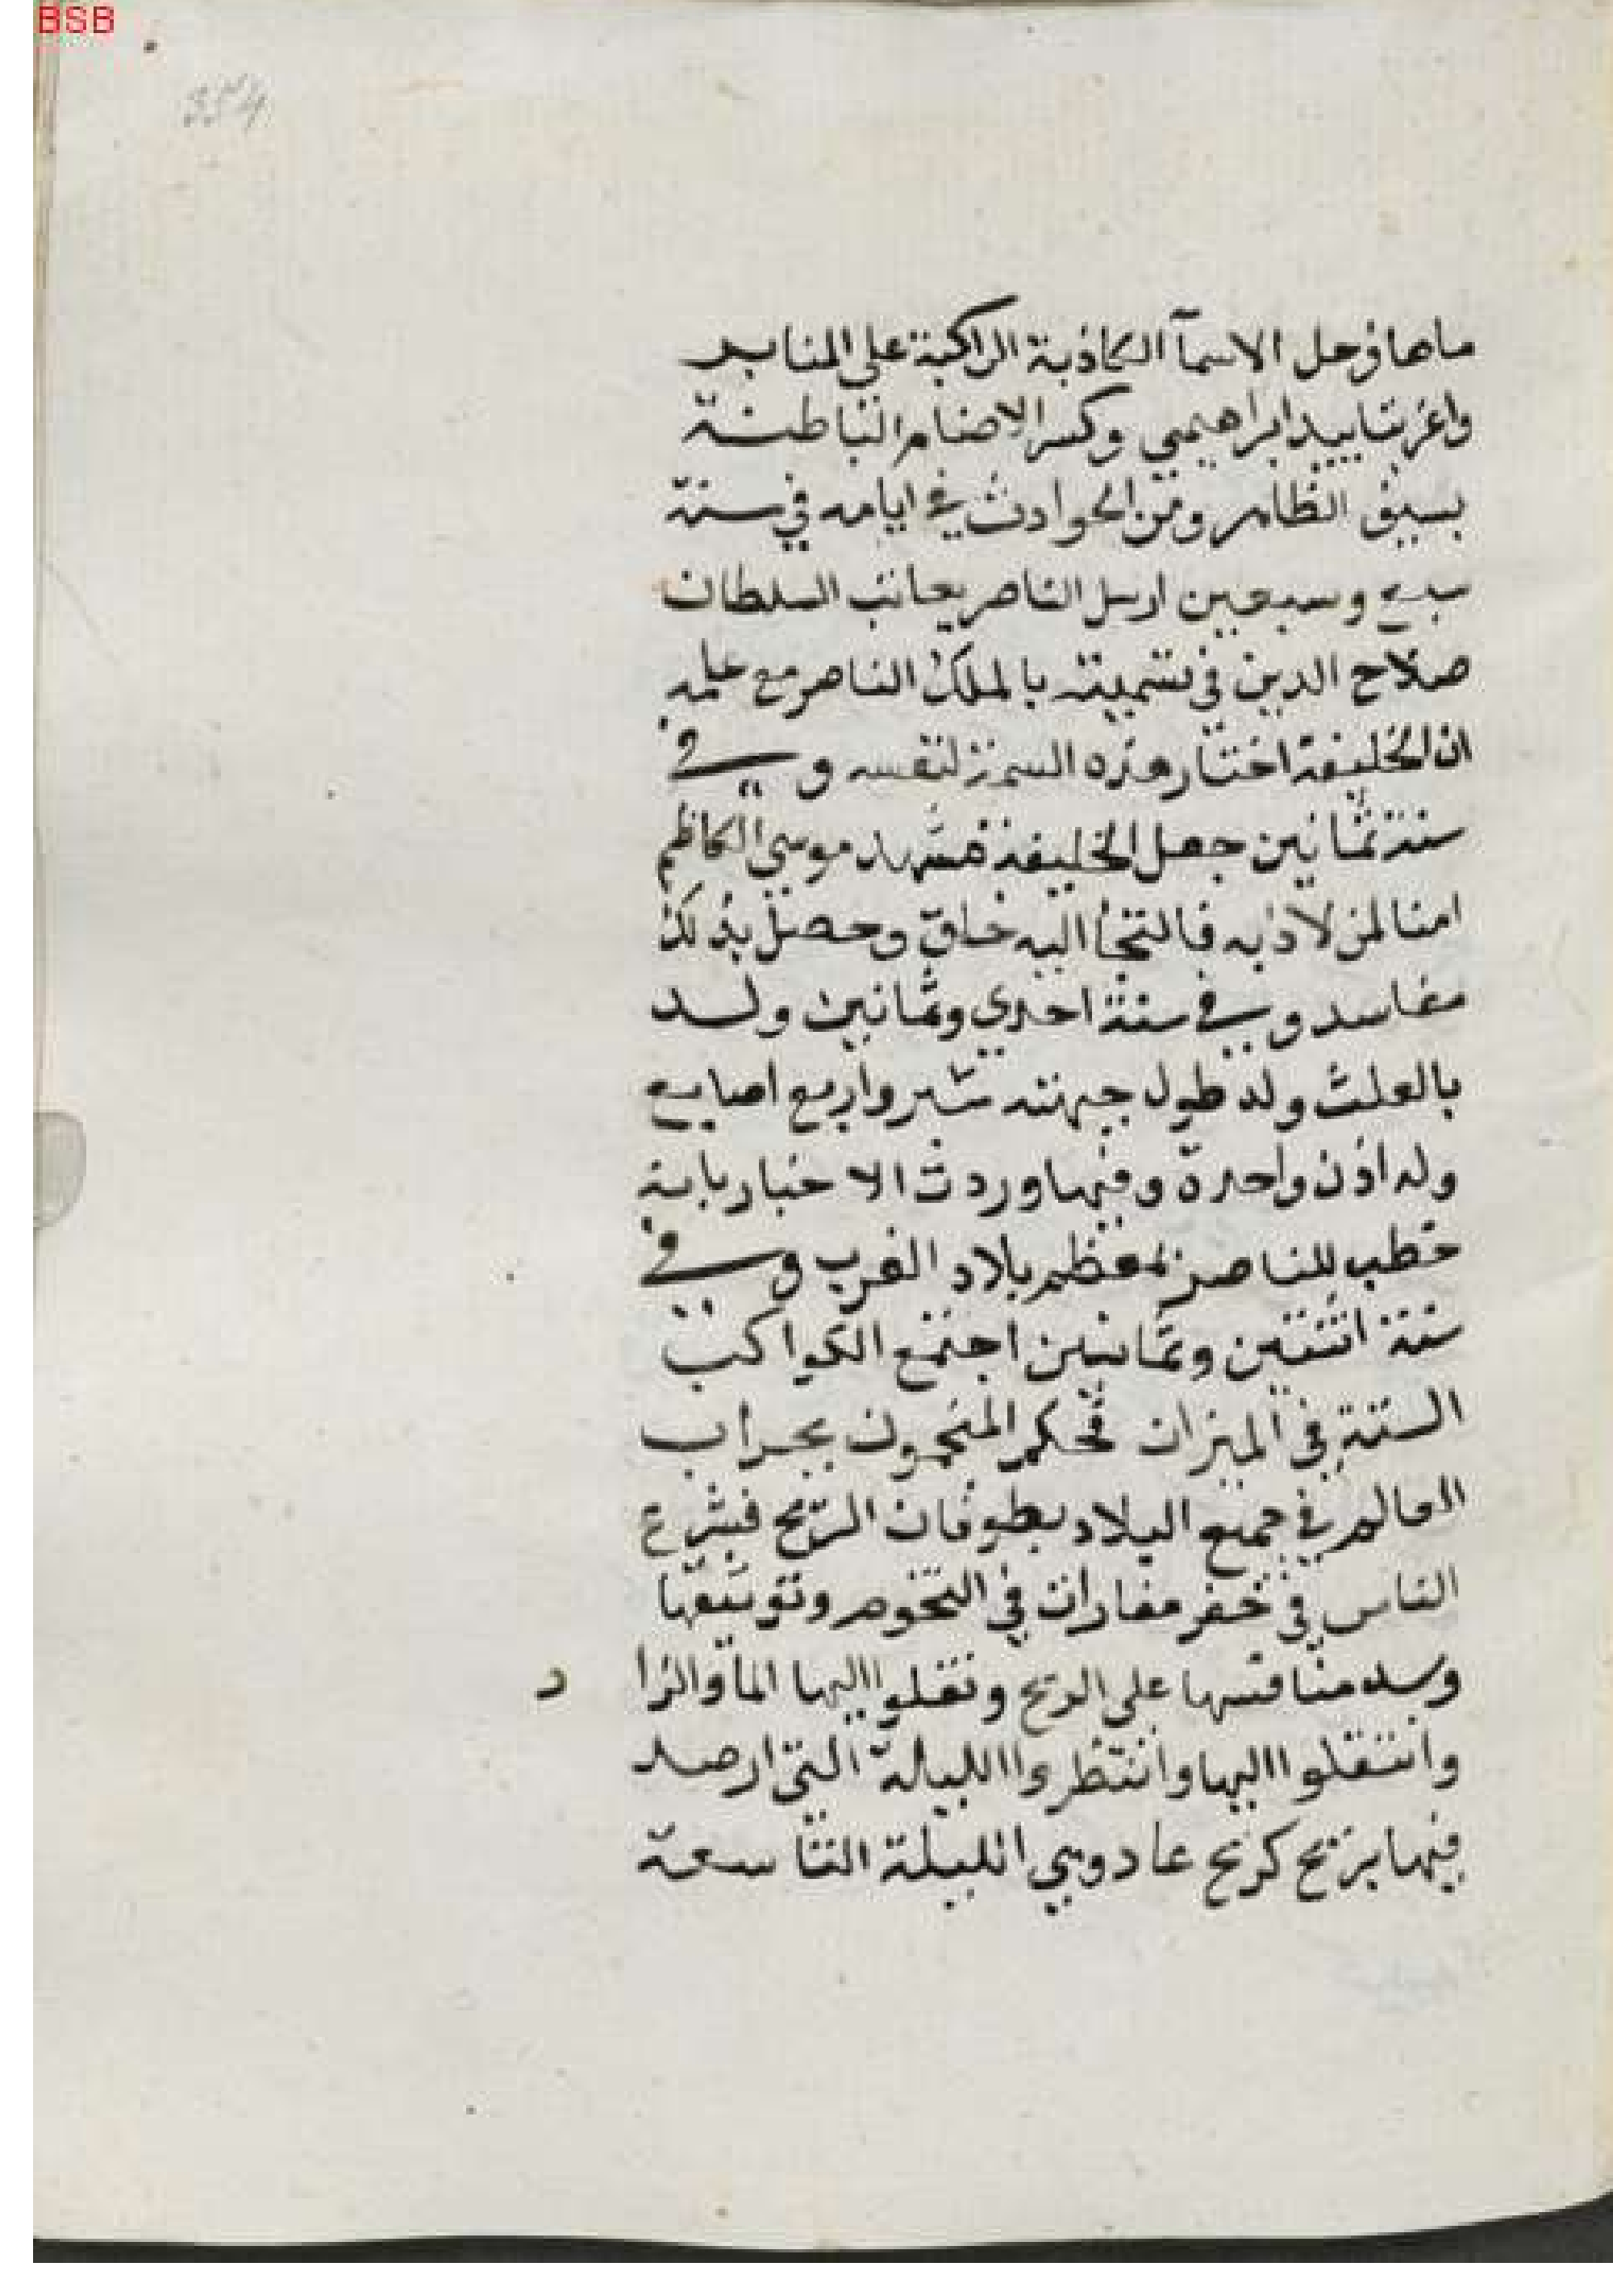 BSB
334
ماها وحل الاسمآ الكاذبة الراكبة على المنابر
واعز بتاييد ابراهيمي وكسر الاصنام الباطنة
بسيفه الظاهر ومن الحوادث في ايامه في سنة
سبع وسبعين ارسل الناصر يعاتب السلطان
صلاح الدين في تسميته بالملك الناصر مع علمه
ان الخليفة اختار هذه السمة لنفسه وفي
سنة ثمانين جعل الخليفة مشهد موسى الكاظم
امنا لمن لاذ به فالتجأ اليه خلق وحصل بذلك
مفاسد وفي سنة احدى وثمانين ولد
بالعلث ولد طول جبهته شبر واربع اصابع
وله اذن واحدة وفيها وردت الاخبار بانه
خطب للناصر بمعظم بلاد الغرب وفي
سنة اثنتين وثمانين اجتمع الكواكب
الستة في الميزان فحكم المنجمون بخراب
العالم في جميع البلاد بطوفان الريح فشرع
الناس في حفر مغارات في التخوم وتوسيعها
وسد منافسها على الريح ونقلوا اليها الما والزاد
وانتقلوا اليها وانتظروا الليلة التي ارصد
فيها بريح كريح عاد وهي الليلة التاسعة